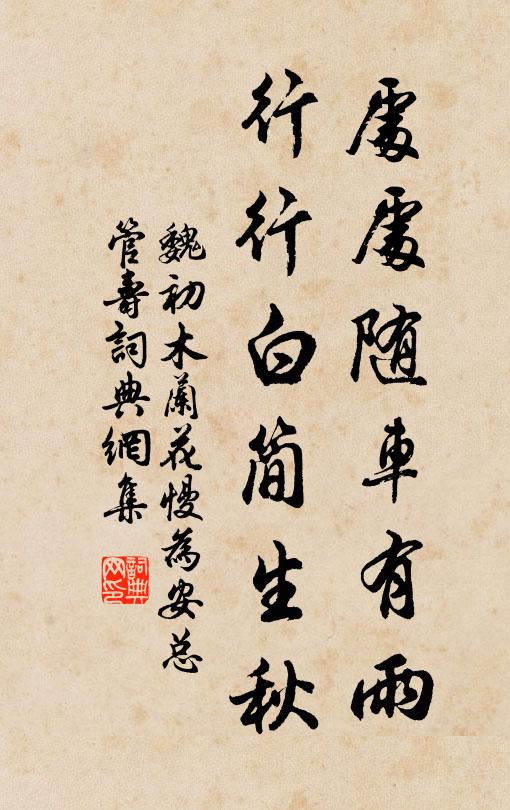 處處随車有雨
行行白简生秋
魏初木蘭花慢為安总
管壽詞典網集
詞典
网印